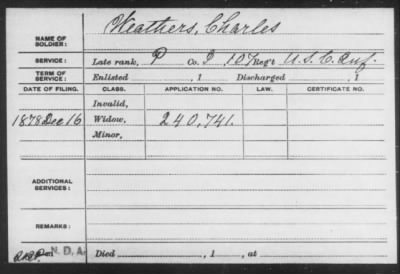 Weathers, Charles
NAME OF SOLDIER:
SERVICE: Late rank, P Co. I 107 Reg't U.S.C. Inf.
TERM OF SERVICE: Enlisted , 1 Discharged , 1
DATE OF FILING. CLASS. APPLICATION NO. LAW. CERTIFICATE NO.
Invalid,
1878 Dec 16 Widow, 240,741.
Minor,
ADDITIONAL SERVICES:
REMARKS:
N. D. A.
Died , 1 , at